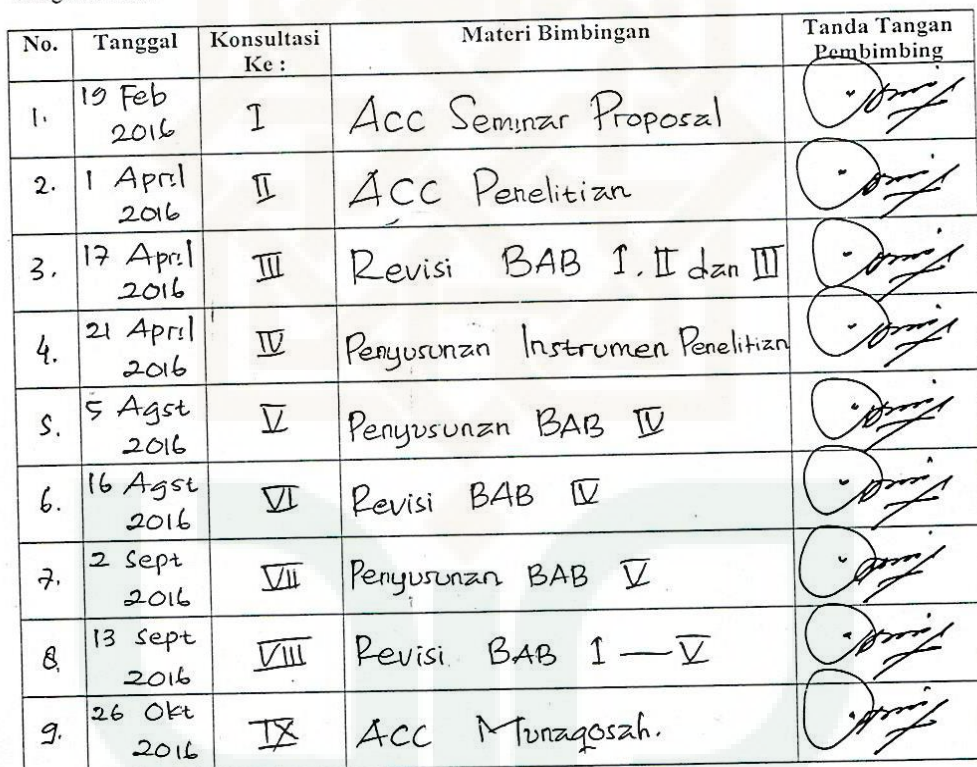 No. Tanggal Konsultasi Ke : Materi Bimbingan Tanda Tangan Pembimbing
1. 19 Feb 2016 I Acc Seminar Proposal
2. 1 April 2016 II ACC Penelitian
3. 17 April 2016 III Revisi BAB I. II dan III
4. 21 April 2016 IV Penyusunan Instrumen Penelitian
5. 5 Agst 2016 V Penyusunan BAB IV
6. 16 Agst 2016 VI Revisi BAB IV
7. 2 Sept 2016 VII Penyusunan BAB V
8. 13 Sept 2016 VIII Revisi BAB I — V
9. 26 Okt 2016 IX ACC Munaqosah.